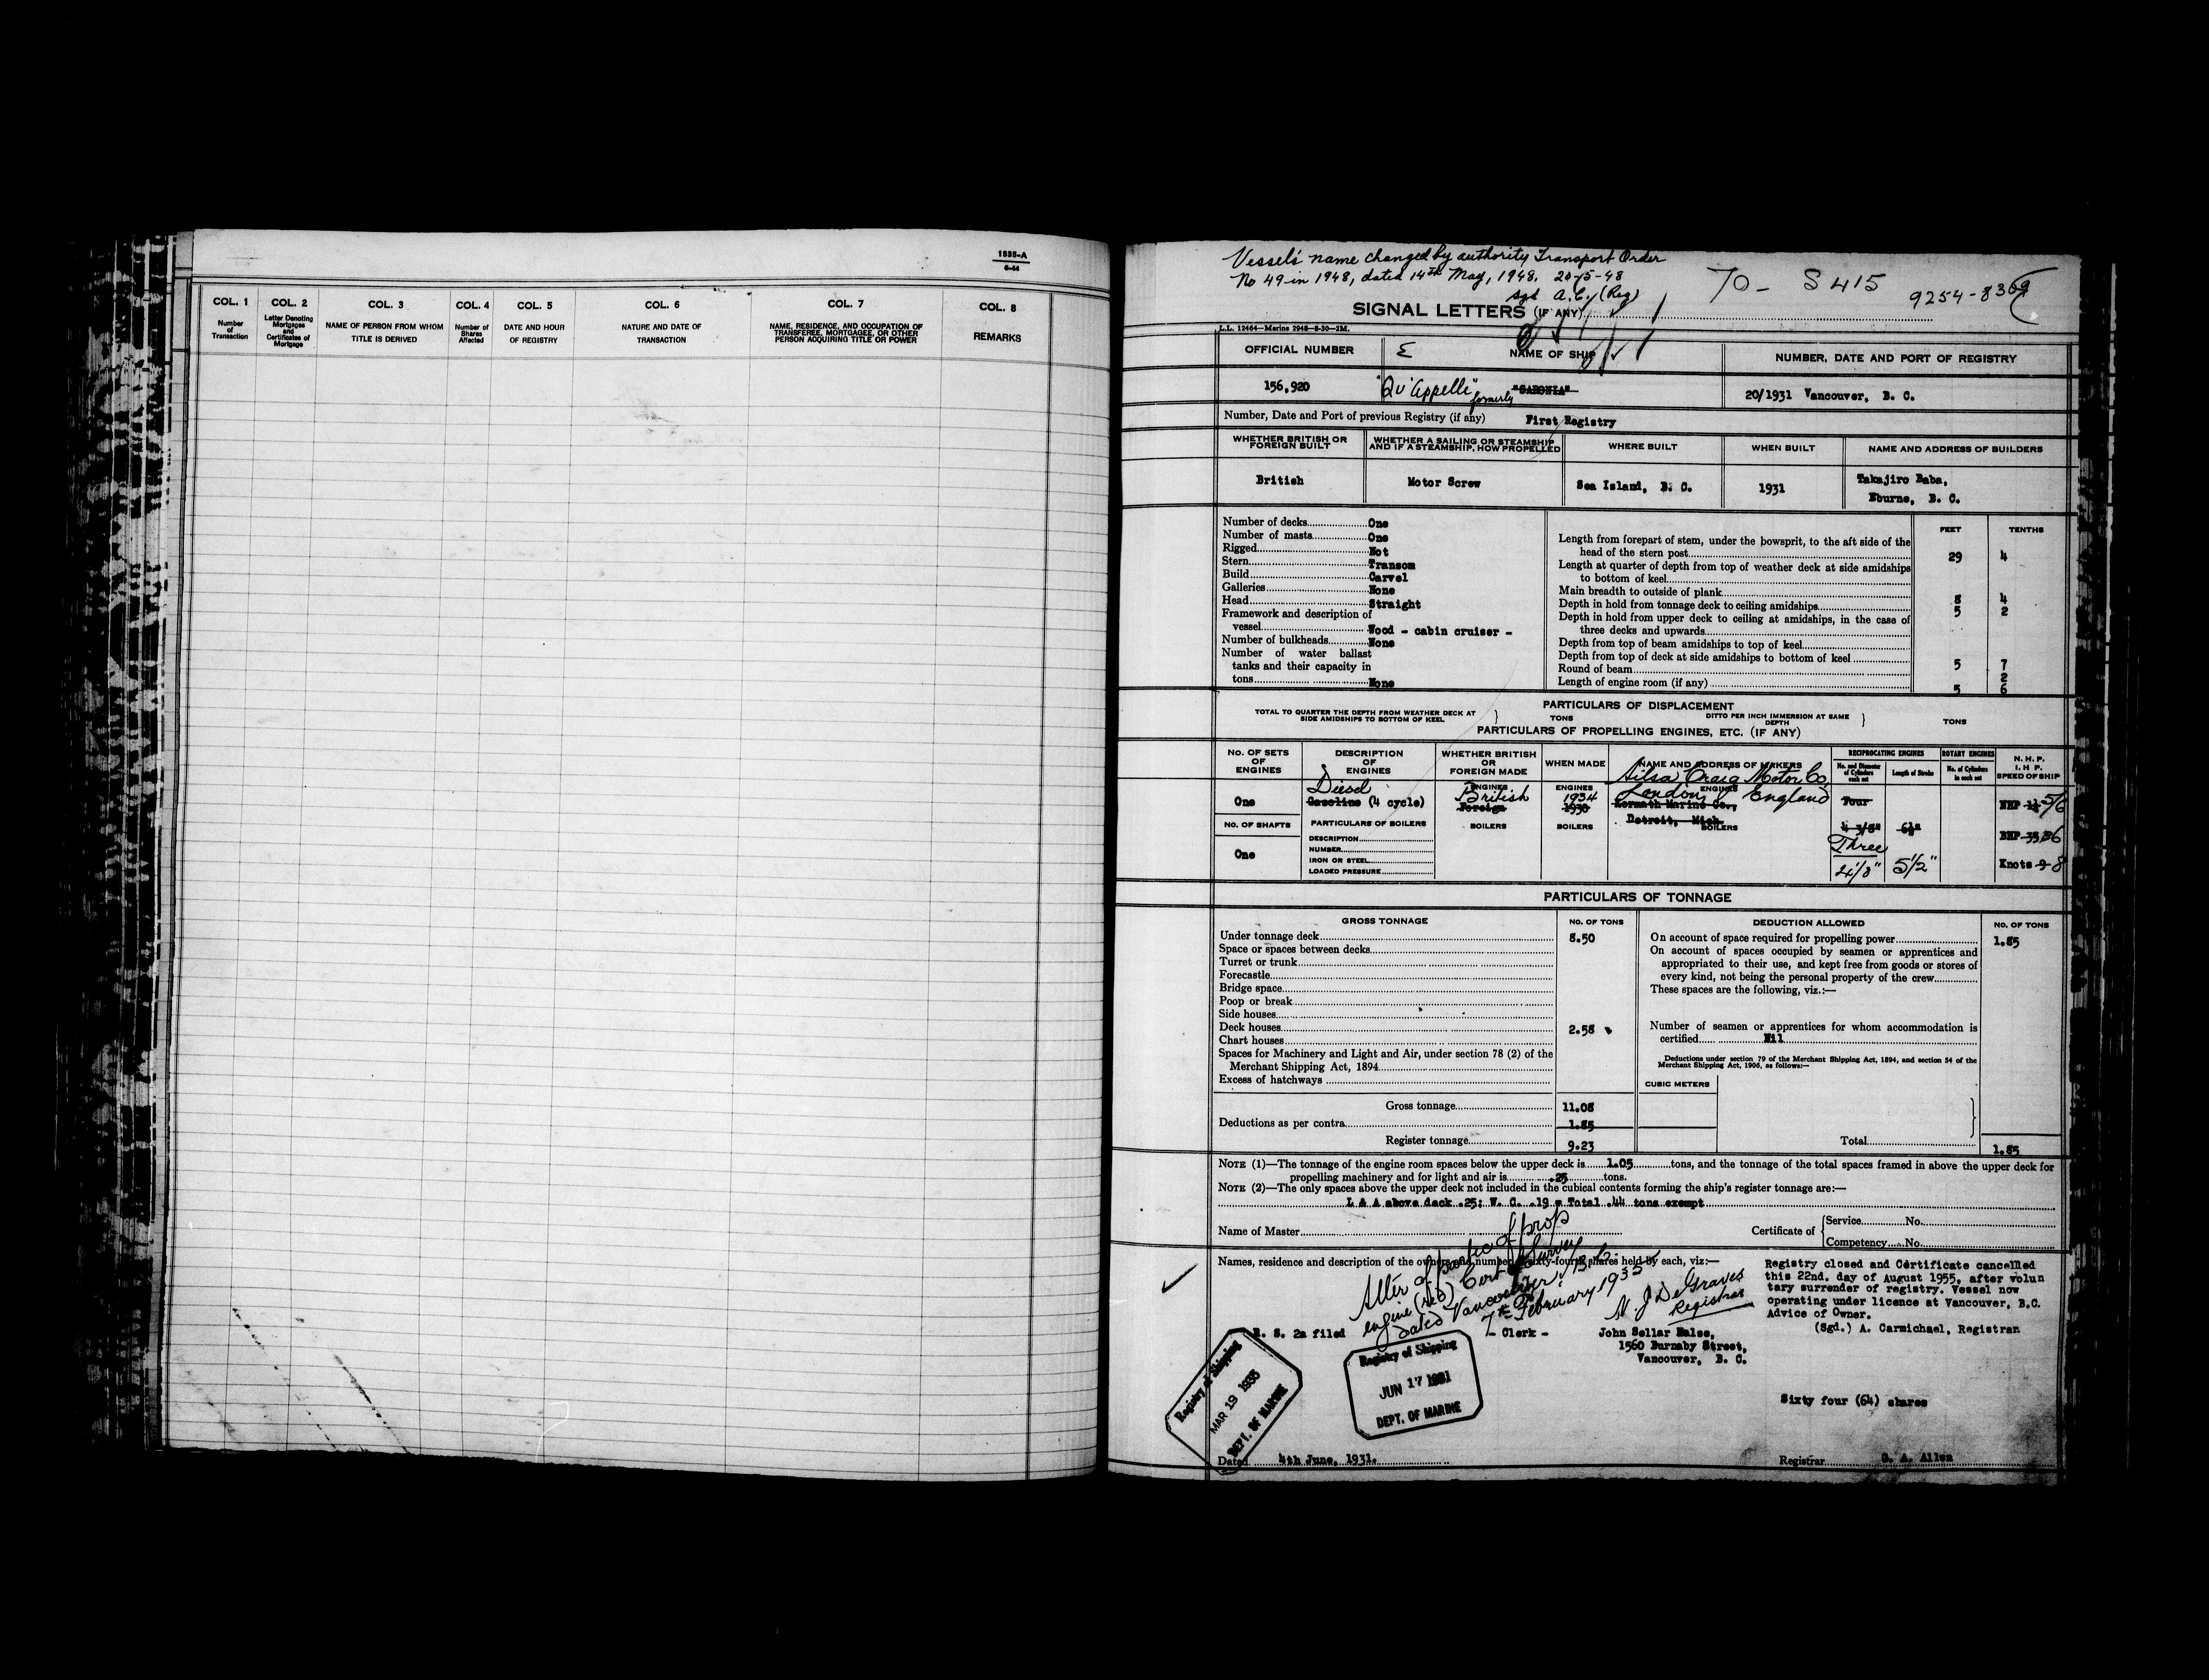 1535-A
6-44
COL. 1
Number
of
Transaction
COL. 2
Letter Denoting
Mortgages
and
Certificates of
Mortgage
COL. 3
NAME OF PERSON FROM WHOM
TITLE IS DERIVED
COL. 4
Number of
Shares
Affected
COL. 5
DATE AND HOUR
OF REGISTRY
COL. 6
NATURE AND DATE OF
TRANSACTION
COL. 7
NAME, RESIDENCE, AND OCCUPATION OF
TRANSFEREE, MORTGAGEE, OR OTHER
PERSON ACQUIRING TITLE OR POWER
COL. 8
REMARKS
Vessel's name changed by authority Transport Order
No 49 in 1948, dated 14th May, 1948. 20-5-48
sgd A.C. (Reg)
70- S 415
9254-8369
SIGNAL LETTERS (IF ANY)
L.L. 12464—Marine 2948—8-30—2M.
OFFICIAL NUMBER
NAME OF SHIP
NUMBER, DATE AND PORT OF REGISTRY
156,920
"Qu'Appelle" formerly "SARONIA"
20/1931 Vancouver, B. C.
Number, Date and Port of previous Registry (if any) First Registry
WHETHER BRITISH OR
FOREIGN BUILT
WHETHER A SAILING OR STEAMSHIP
AND IF A STEAMSHIP, HOW PROPELLED
WHERE BUILT
WHEN BUILT
NAME AND ADDRESS OF BUILDERS
British
Motor Screw
Sea Island, B. C.
1931
Takajiro Baba,
Eburne, B. C.
Number of decks One
Number of masts One
Rigged Not
Stern Transom
Build Carvel
Galleries None
Head Straight
Framework and description of
vessel Wood - cabin cruiser -
Number of bulkheads None
Number of water ballast
tanks and their capacity in
tons None
FEET TENTHS
Length from forepart of stem, under the bowsprit, to the aft side of the
head of the stern post 29 4
Length at quarter of depth from top of weather deck at side amidships
to bottom of keel
Main breadth to outside of plank 8 4
Depth in hold from tonnage deck to ceiling amidships 5 2
Depth in hold from upper deck to ceiling at amidships, in the case of
three decks and upwards
Depth from top of beam amidships to top of keel
Depth from top of deck at side amidships to bottom of keel 5 7
Round of beam 2
Length of engine room (if any) 5 6
PARTICULARS OF DISPLACEMENT
TOTAL TO QUARTER THE DEPTH FROM WEATHER DECK AT
SIDE AMIDSHIPS TO BOTTOM OF KEEL } TONS
DITTO PER INCH IMMERSION AT SAME
DEPTH } TONS
PARTICULARS OF PROPELLING ENGINES, ETC. (IF ANY)
No. OF SETS
OF
ENGINES
DESCRIPTION
OF
ENGINES
WHETHER BRITISH
OR
FOREIGN MADE
WHEN MADE
NAME AND ADDRESS OF MAKERS
RECIPROCATING ENGINES
No. and Diameter
of Cylinders
each set
Length of Stroke
ROTARY ENGINES
No. of Cylinders
in each set
N. H. P.
I. H. P.
SPEED OF SHIP
One
Diesel
Gasoline (4 cycle)
ENGINES
British
Foreign
ENGINES
1934
1930
Ailsa Craig Motor Co
ENGINES
London, England
Kermath Marine Co.,
Detroit, Mich.
Four
4 3/8"
Three
4 1/8"
5 1/2"
NHP 5/6
BHP 35 36
Knots 9 8
NO. OF SHAFTS
One
PARTICULARS OF BOILERS
DESCRIPTION
NUMBER
IRON OR STEEL
LOADED PRESSURE
BOILERS
BOILERS
BOILERS
PARTICULARS OF TONNAGE
GROSS TONNAGE
NO. OF TONS
Under tonnage deck 8.50
Space or spaces between decks
Turret or trunk
Forecastle
Bridge space
Poop or break
Side houses
Deck houses 2.58
Chart houses
Spaces for Machinery and Light and Air, under section 78 (2) of the
Merchant Shipping Act, 1894
Excess of hatchways
Gross tonnage 11.08
Deductions as per contra 1.85
Register tonnage 9.23
DEDUCTION ALLOWED
NO. OF TONS
On account of space required for propelling power 1.85
On account of spaces occupied by seamen or apprentices and
appropriated to their use, and kept free from goods or stores of
every kind, not being the personal property of the crew
These spaces are the following, viz.:—
Number of seamen or apprentices for whom accommodation is
certified Nil
Deductions under section 79 of the Merchant Shipping Act, 1894, and section 54 of the
Merchant Shipping Act, 1906, as follows:—
CUBIC METERS
Total 1.85
NOTE (1)—The tonnage of the engine room spaces below the upper deck is 1.05 tons, and the tonnage of the total spaces framed in above the upper deck for
propelling machinery and for light and air is .25 tons.
NOTE (2)—The only spaces above the upper deck not included in the cubical contents forming the ship's register tonnage are:—
L & A above deck .25; W. C. .19 = Total .44 tons exempt
Name of Master
Certificate of { Service No.
Competency No.
Names, residence and description of the owners and number of sixty-fourth shares held by each, viz:—
Alter of partic of prop
engine (red) Cert of Survey
dated Vancouver, B.C.
7th February 1935
N. J. DeGraves
Registrar
R. S. 2a filed
- Clerk -
John Sellar Halse,
1560 Burnaby Street,
Vancouver, B. C.
Registry closed and Certificate cancelled
this 22nd. day of August 1955, after volun
tary surrender of registry. Vessel now
operating under licence at Vancouver, B.C.
Advice of Owner.
(Sgd.) A. Carmichael, Registrar
Sixty four (64) shares
Registry of Shipping
MAR 19 1935
DEPT. OF MARINE
Registry of Shipping
JUN 17 1931
DEPT. OF MARINE
Dated 4th June, 1931.
Registrar G. A. Allen